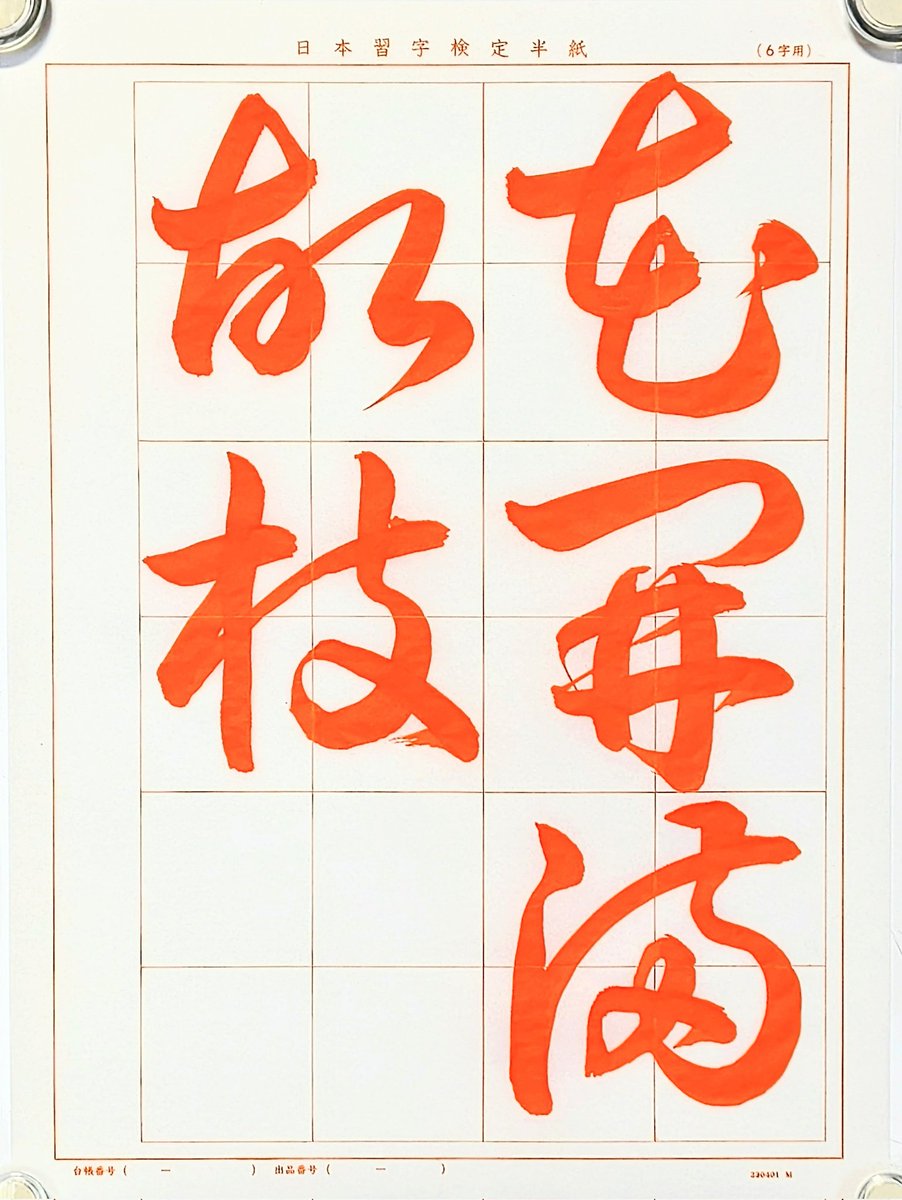 日本習字検定半紙
（6字用）
花開満
故枝
台帳番号（　－　）
出品番号（　－　）